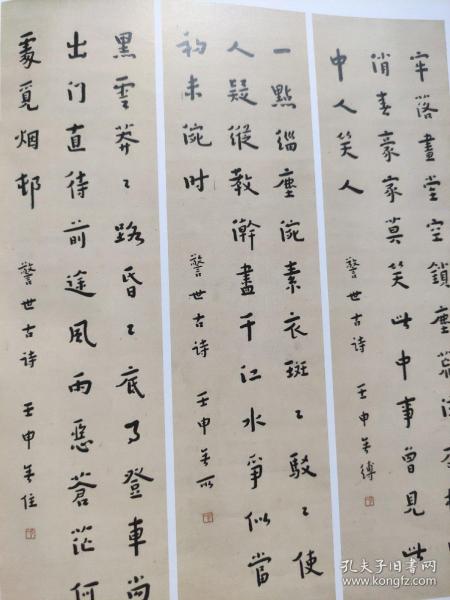 牢落畫堂空鎖塵
消春豪家莫笑此中事曾見此
中人笑人
警世古诗 壬申無縛
一點緇塵涴素衣斑〻駁〻使
人疑縱教澣盡千江水爭似當
初未涴时
警世古诗 壬申無所
黑雲莽〻路昏〻底事登車尚
出门直待前途風雨惡蒼茫何
處覓烟邨
警世古诗 壬申無住
孔夫子旧书网